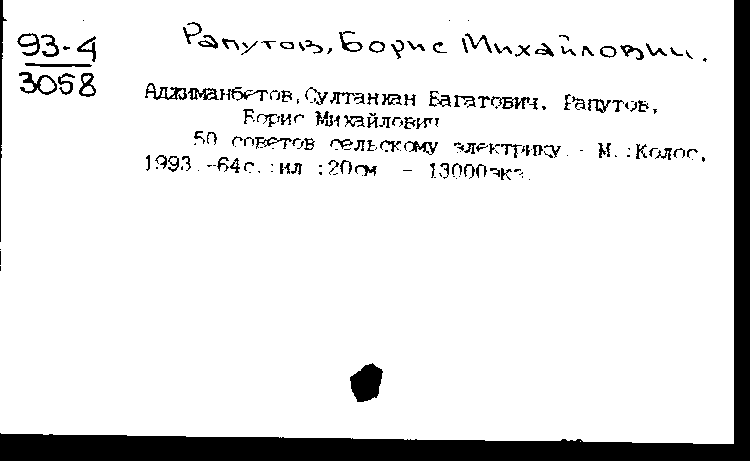 93-4
3058
Рапутов, Борис Михайлович.
Аджиманбетов, Султанхан Багатович. Рапутов,
Борис Михайлович
50 советов сельскому электрику. - М.:Колос,
1993.-64с.:ил :20см - 13000экз.